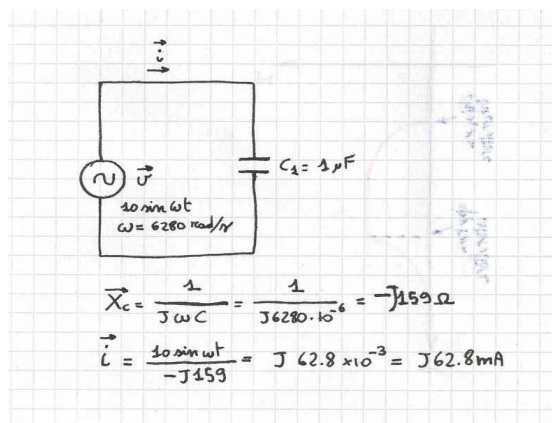 i
v
C₁ = 1 μF
10 sin ωt
ω = 6280 rad/s
Xc = 1 / JωC = 1 / J6280·10⁻⁶ = -J159 Ω
i = 10 sin ωt / -J159 = J 62.8 ×10⁻³ = J62.8 mA